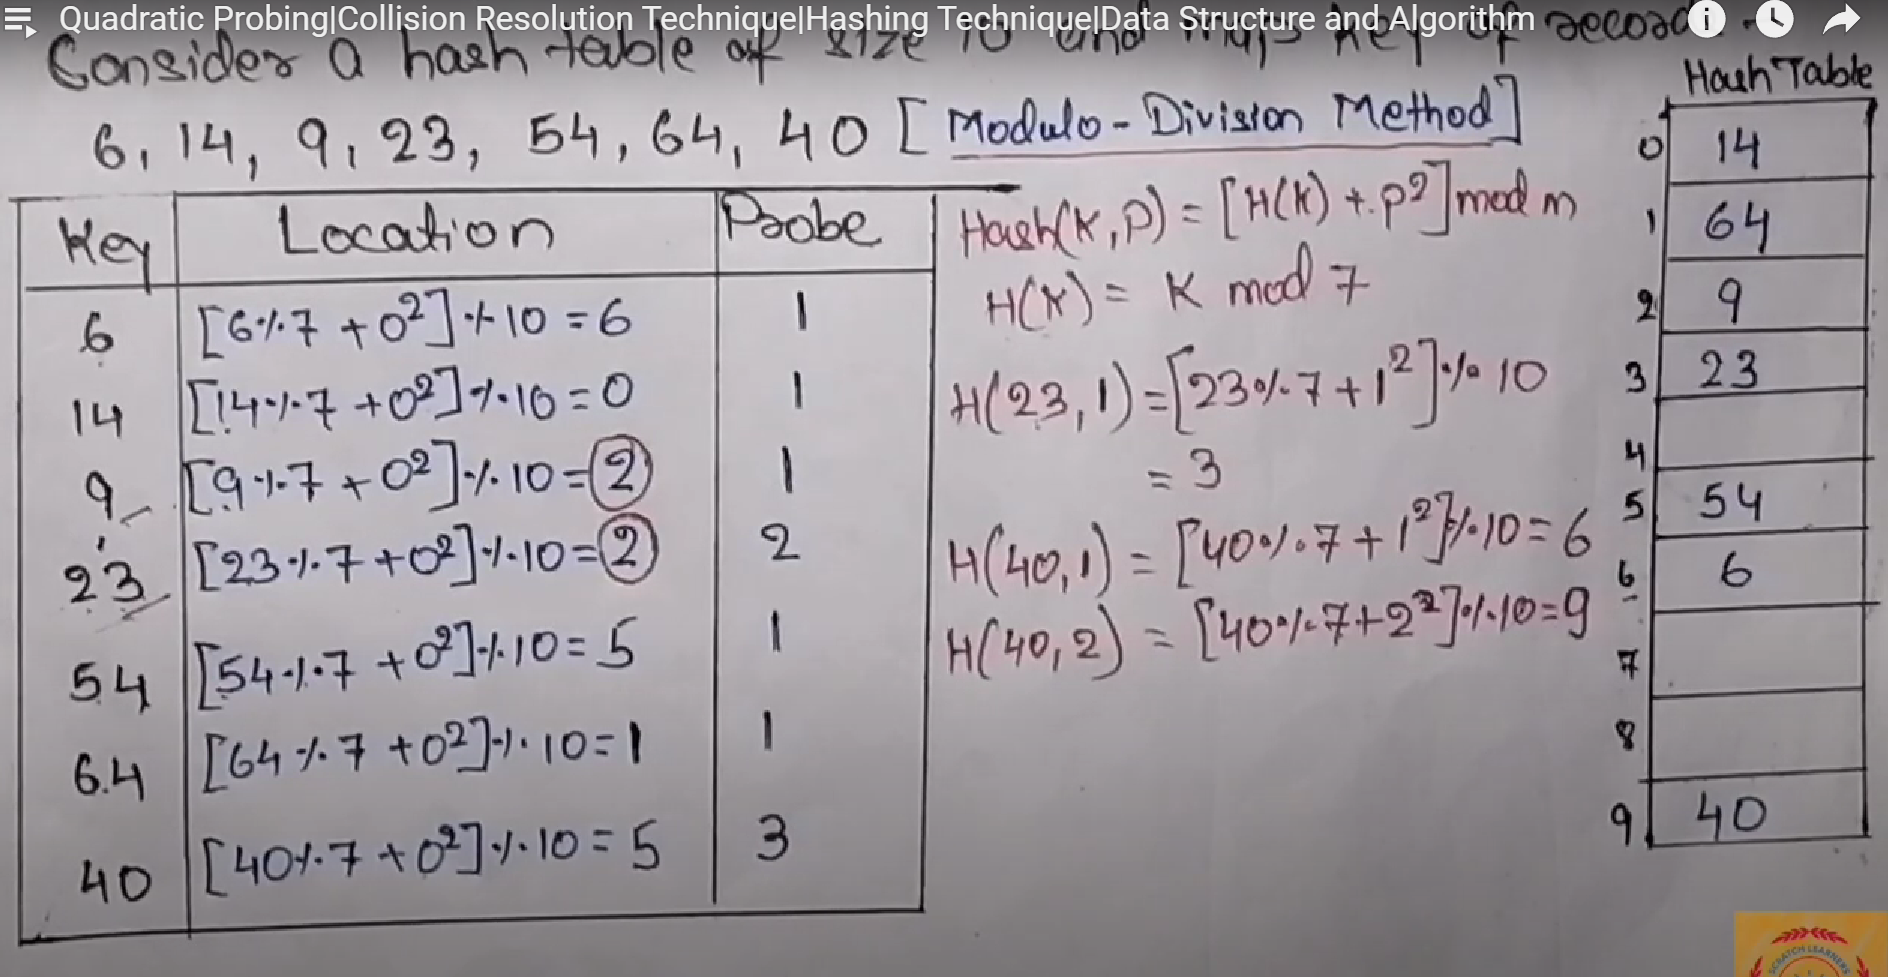 Quadratic Probing|Collision Resolution Technique|Hashing Technique|Data Structure and Algorithm
Consider a hash table of size 10 and maps key of record -
6, 14, 9, 23, 54, 64, 40 [Modulo-Division Method]
Key Location Probe
6 [6%7 + 0²]%10 = 6 1
14 [14%7 + 0²]%10 = 0 1
9 [9%7 + 0²]%10 = 2 1
23 [23%7 + 0²]%10 = 2 2
54 [54%7 + 0²]%10 = 5 1
64 [64%7 + 0²]%10 = 1 1
40 [40%7 + 0²]%10 = 5 3
Hash(K,P) = [H(K) + P²] mod m
H(K) = K mod 7
H(23,1) = [23%7 + 1²]%10
= 3
H(40,1) = [40%7 + 1²]%10 = 6
H(40,2) = [40%7 + 2²]%10 = 9
Hash Table
0 14
1 64
2 9
3 23
4
5 54
6 6
7
8
9 40
SCRATCH LEARNERS